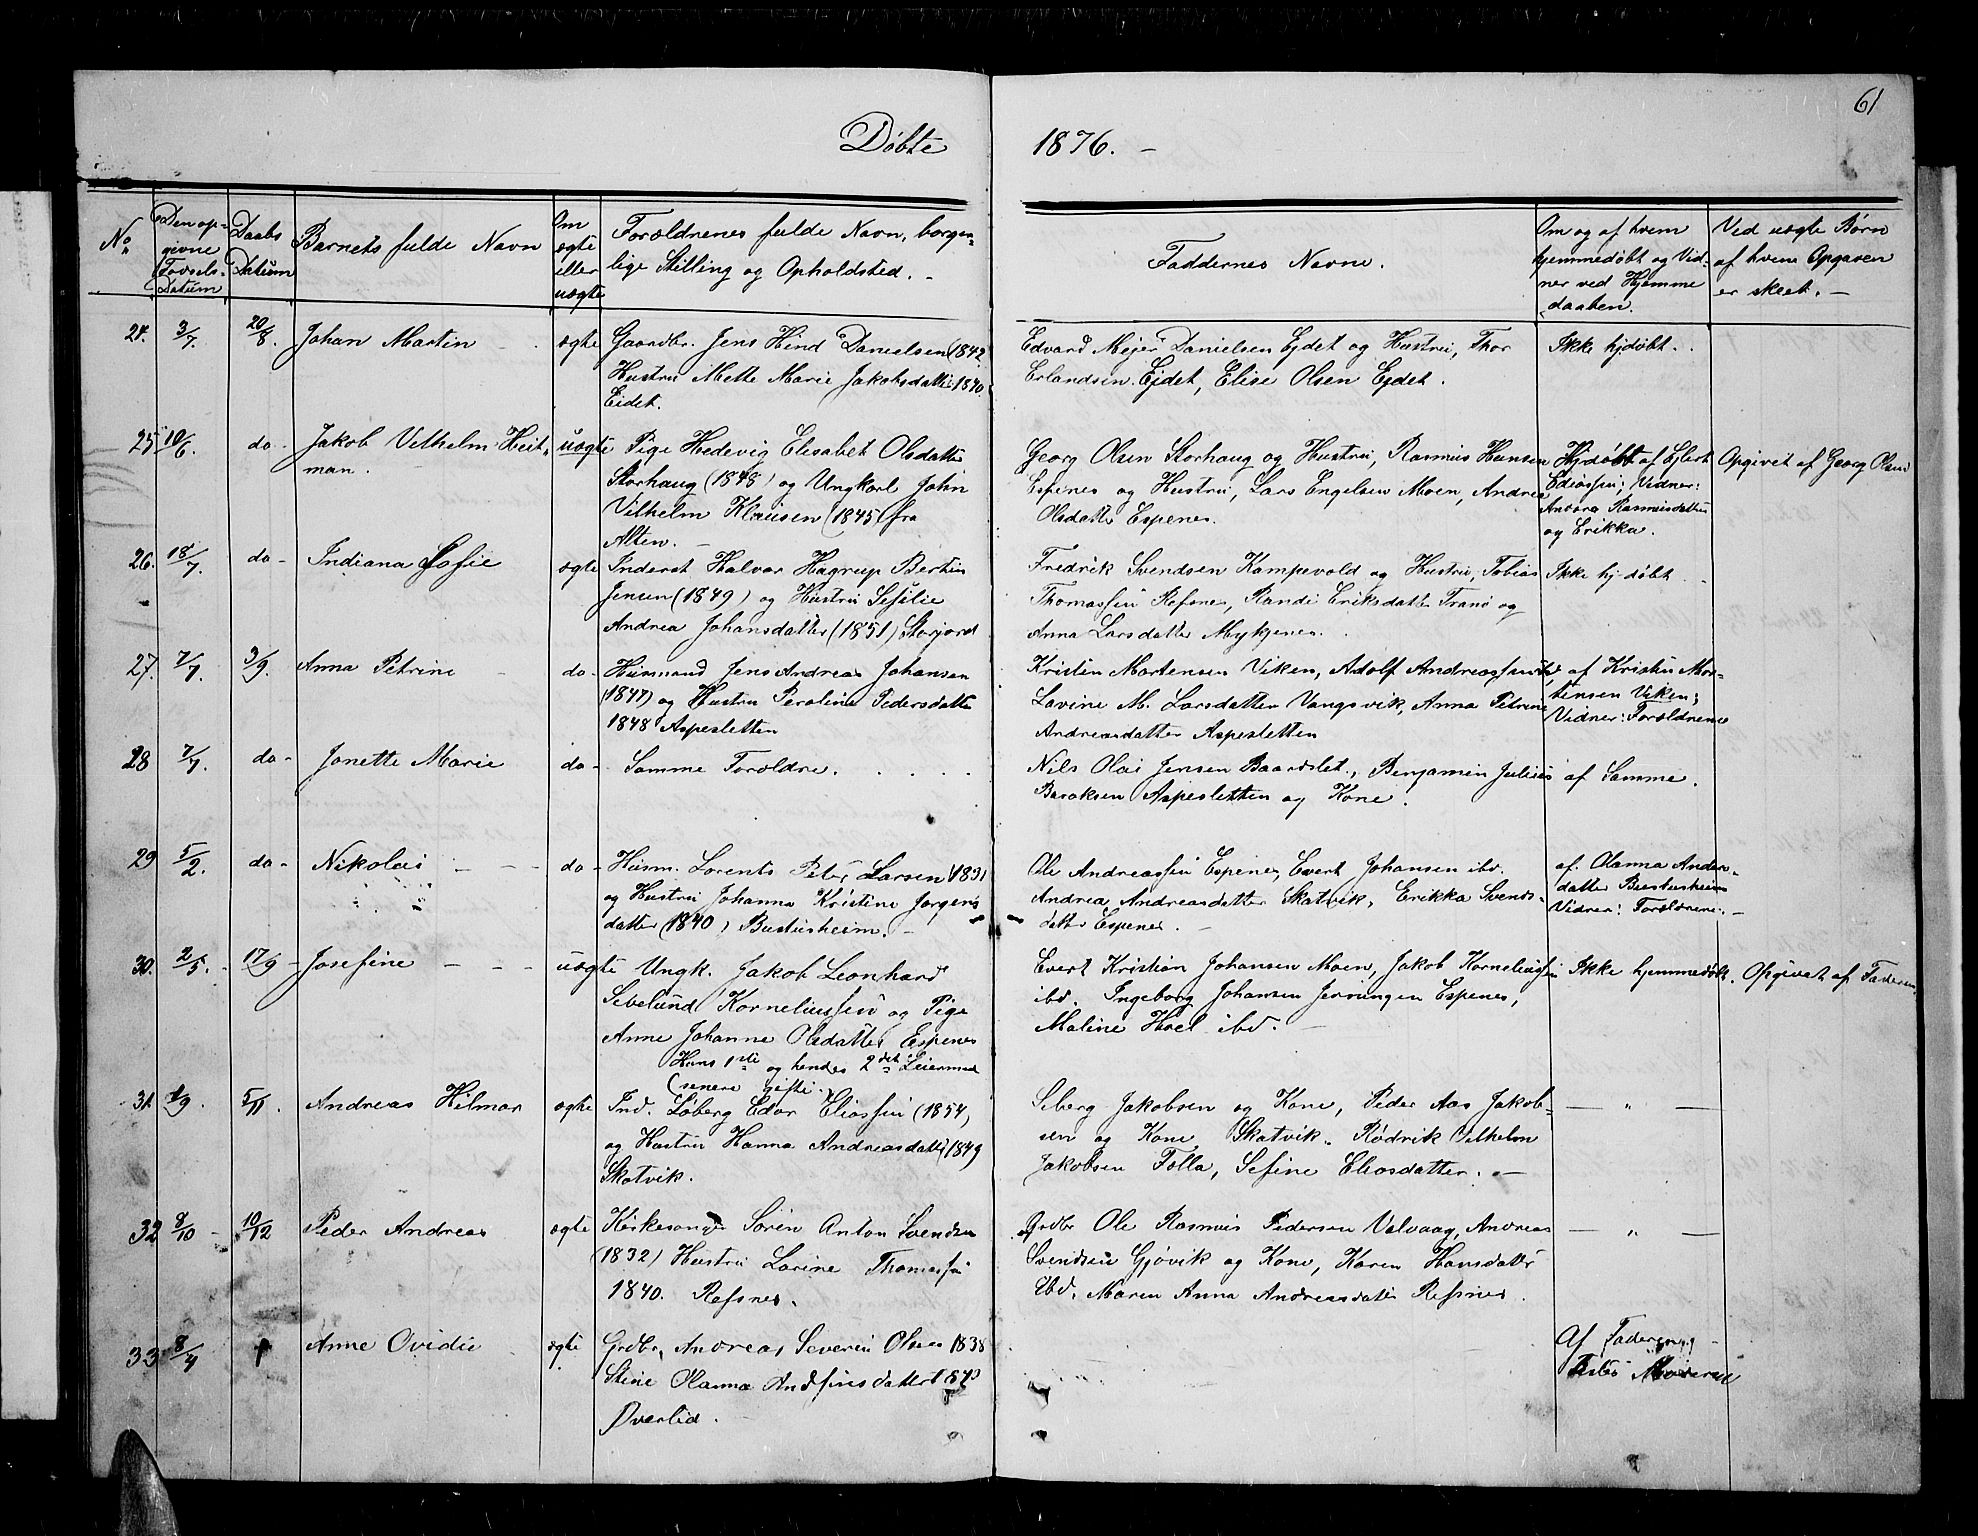 61
Døbte 1876. –
No
Den op-
givne
Fødsels-
Datum
Daabs
Datum
Barnets fulde Navn
Om
ægte
eller
uægte
Forældrenes fulde Navn, borger-
lige Stilling og Opholdsted. –
Faddernes Navne.
Om og af hvem
hjemmedøbt og Vid-
ner ved Hjemme
daaben.
Ved uægte Børn
af hvem Opgaven
er skeet. –
24. 3/7. 20/8. Johan Martin ægte
Gaardbr. Jens Hind Danielsen (1842
Hustru Mette Marie Jakobsdatter 1840
Eidet.
Edvard Mejer Danielsen Ejdet og Hustru, Thor
Erlandsen Ejdet, Elise Olsen Ejdet.
Ikke hjdøbt.
25 10/6. do- Jakob Vilhelm Heit-
man. uægte
Pige Hedevig Elisabet Olsdatter
Storhaug (1848) og Ungkarl John
Vilhelm Klausen (1845) fra
Alten. –
Georg Olsen Storhaug og Hustru, Rasmus Hansen
Espenes og Hustru, Lars Engelsen Moen, Andrea
Olsdatter Espenes.
Hjdøbt af Ejlert
Vidner:
Rasmusdatter
og Erikka.
Opgivet af Georg Olsen
26. 18/7. do- Indiana Sofie ægte
Inderst Halvor Hagrup Bertin
Jensen (1849) og Hustru Sefilie
Andrea Johansdatter (1851) Storjord
Fredrik Svendsen Kampevold og Hustru, Tobias
Thomassen Refsne, Randi Eriksdatter Tranø og
Anna Larsdatter Mykjenes.
Ikke hj-døbt
27. 7/7. 3/9. Anna Petrine do-
Husmand Jens Andreas Johansen
(1847) og Hustru Peroline Pedersdatter
1848 Aspesletten
Kristen Mortensen Viken, Adolf Andreassen ibd,
Lavine M. Larsdatter Vangsvik, Anna Petrine
Andreasdatter Aspesletten
af Kristen Mor-
tensen Viken;
Vidner: Forældrene
28 7/7. do- Jonette Marie do-
Samme Forældre.
Nils Olai Jensen Baardslet., Benjamin Julius
Baraksen Aspesletten og Kone.
af Samme.
29 5/2. do- Nikolai – – do-
Husm. Lorents Peter Larsen 1831
og Hustru Johanna Kristine Jørgens
datter (1840) Bustusheim. –
Ole Andreassen Espenes, Evert Johansen ibd.
Andrea Andreasdatter Skatvik, Erikka Svends-
datter Espenes. –
af. Olanna Anders-
datter Bustusheim
Vidner: Forældrene. –
30. 2/5. 17/9 Josefine – – – uægte
Ungk. Jakob Leonhard
Sevelund Korneliussen og Pige
Anne Johanne Olsdatter Espenes
Hans 1ste og hendes 2det Leiermaal
(senere gifte.)
Evert Kristian Johansen Moen, Jakob Korneliussen
ibd. Ingeborg Johansen Jenningen Espenes,
Maline Hoel ibd. –
Ikke hjemmedøbt.
Opgivet af Faderen
31. 1/9. 5/11. Andreas Hilmar ægte
Ind. Søberg Edor Eliassen (1854,
og Hustru Hanna Andreasdatter 1849
Skatvik.
Seberg Jakobsen og Kone, Peder Aas Jakob-
sen og Kone Skatvik. Rødrik Vilhelm
Jakobsen Folla, Sefine Eliasdatter. –
— " —
32 8/10 10/12 Peder Andreas ægte
Kirkesanger Søren Anton Svendsen
(1832) Hustru Lorine Thomassen
1840. Refsnes.
Grdbr Ole Rasmus Pedersen Valvaag, Andreas
Svendsen Gjøvik og Kone, Karen Hansdatter
Ibd. Maren Anna Andreasdatter Refsnes.
— " —
33 8/4 Anne Ovidie ægte
Grdbr. Andreas Severin Olsen 1838
Stine Olanna Andfinsdatter 1843
Øverlid.
Af Faderen;
Moderen